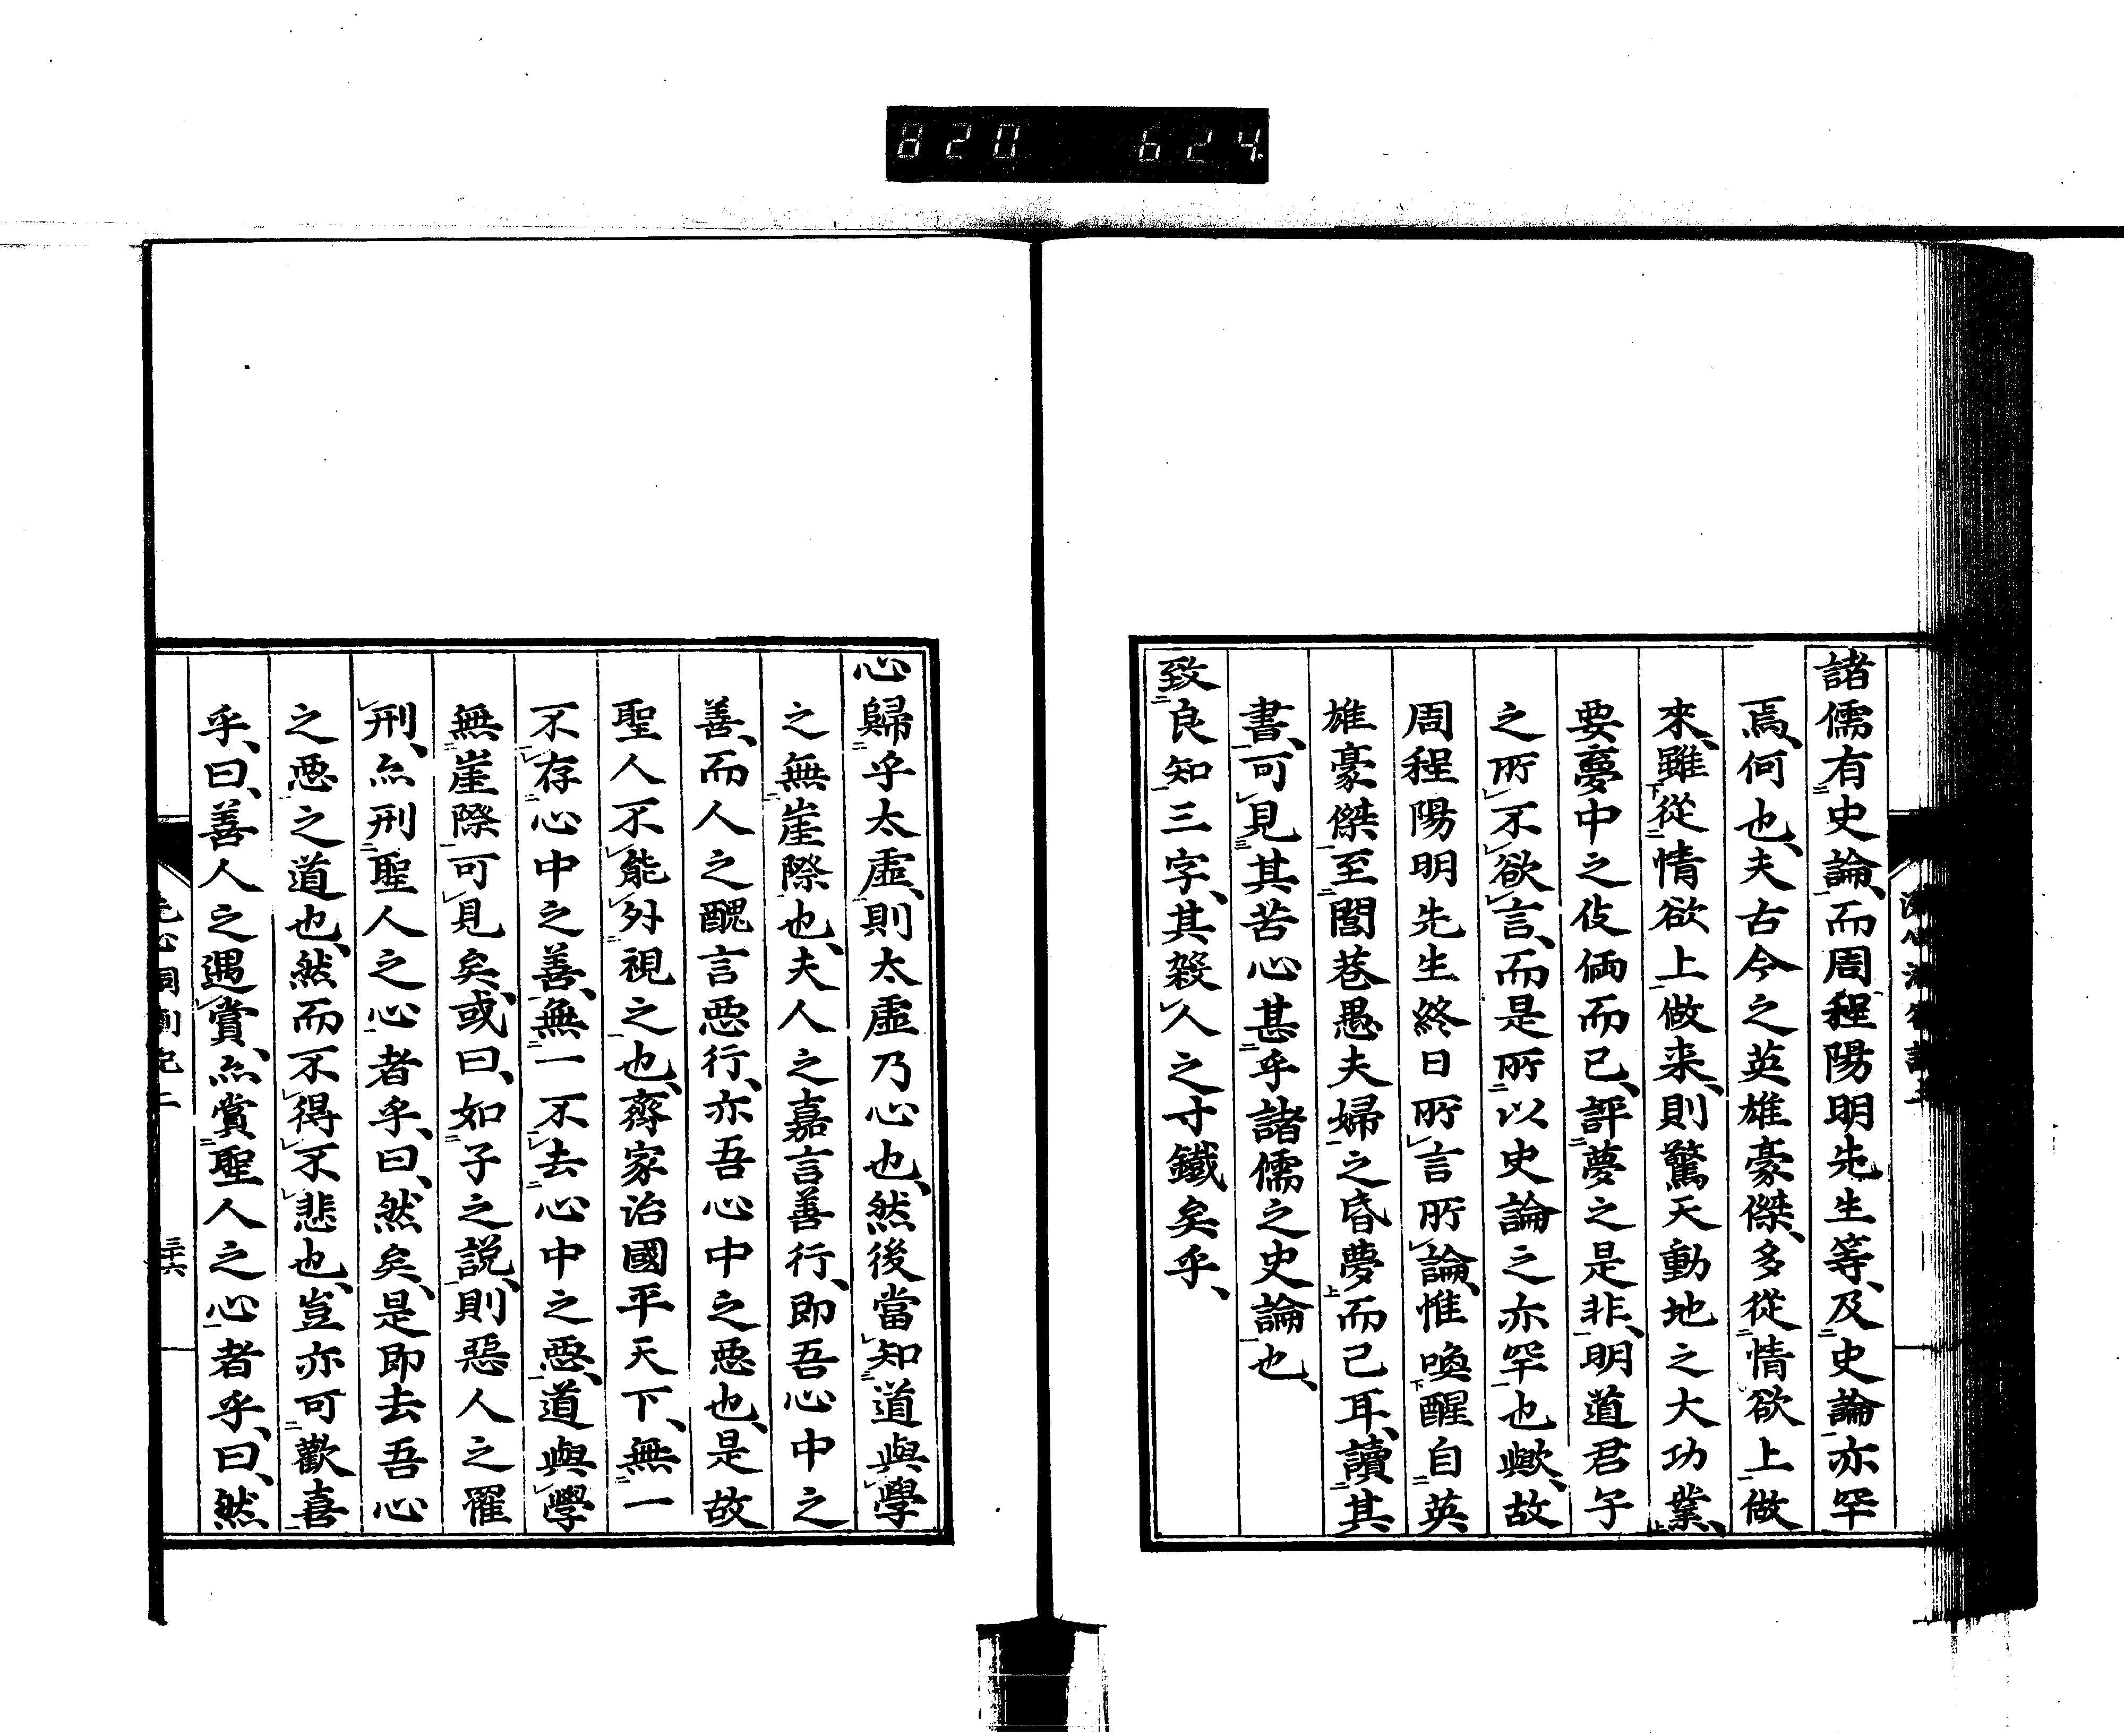 820 624
諸儒有史論、而周程陽明先生等、及史論亦罕
焉、何也、夫古今之英雄豪傑、多從情欲上做
來、雖從情欲上做来、則驚天動地之大功業、
要夢中之伎倆而已、評夢之是非、明道君子
之所不欲言、而是所以史論之亦罕也歟、故
周程陽明先生終日所言所論、惟喚醒自英
雄豪傑、至閭巷愚夫婦之昏夢而已耳、讀其
書、可見其苦心甚乎諸儒之史論也、
致良知三字、其殺人之寸鐵矣乎、
心歸乎太虛、則太虛乃心也、然後當知道與學
之無崖際也、夫人之嘉言善行、即吾心中之
善、而人之醜言悪行、亦吾心中之悪也、是故
聖人不能外視之也、齊家治國平天下、無一
不存心中之善、無一不去心中之悪、道與學
無崖際可見矣、或曰、如子之説、則惡人之罹
刑、亦刑聖人之心者乎、曰、然矣、是即去吾心
之悪之道也、然而不得不悲也、豈亦可歡喜
乎、曰、善人之遇賞、亦賞聖人之心者乎、曰、然
洞劄記二
三十六